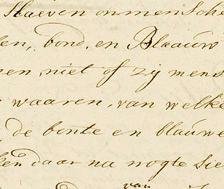 Slaeven onmensche
en, bond, en Blaauw
men niet of zij mens
waaren, van welke
de bonte en blauwe
ken daar na nogte sie
van